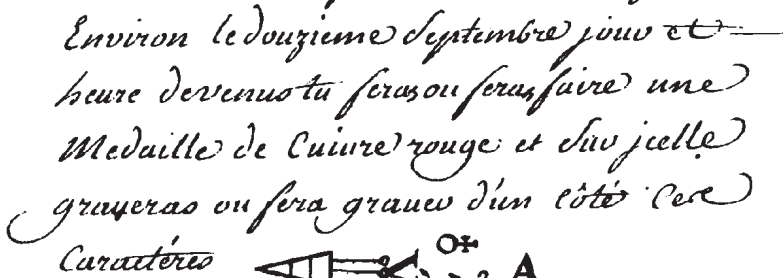 Environ le douzieme Septembre jour et
heure de venus tu feras ou feras faire une
Medaille de Cuivre rouge et sur jcelle
graveras ou fera graver d'un côté Ces
Caractéres
A